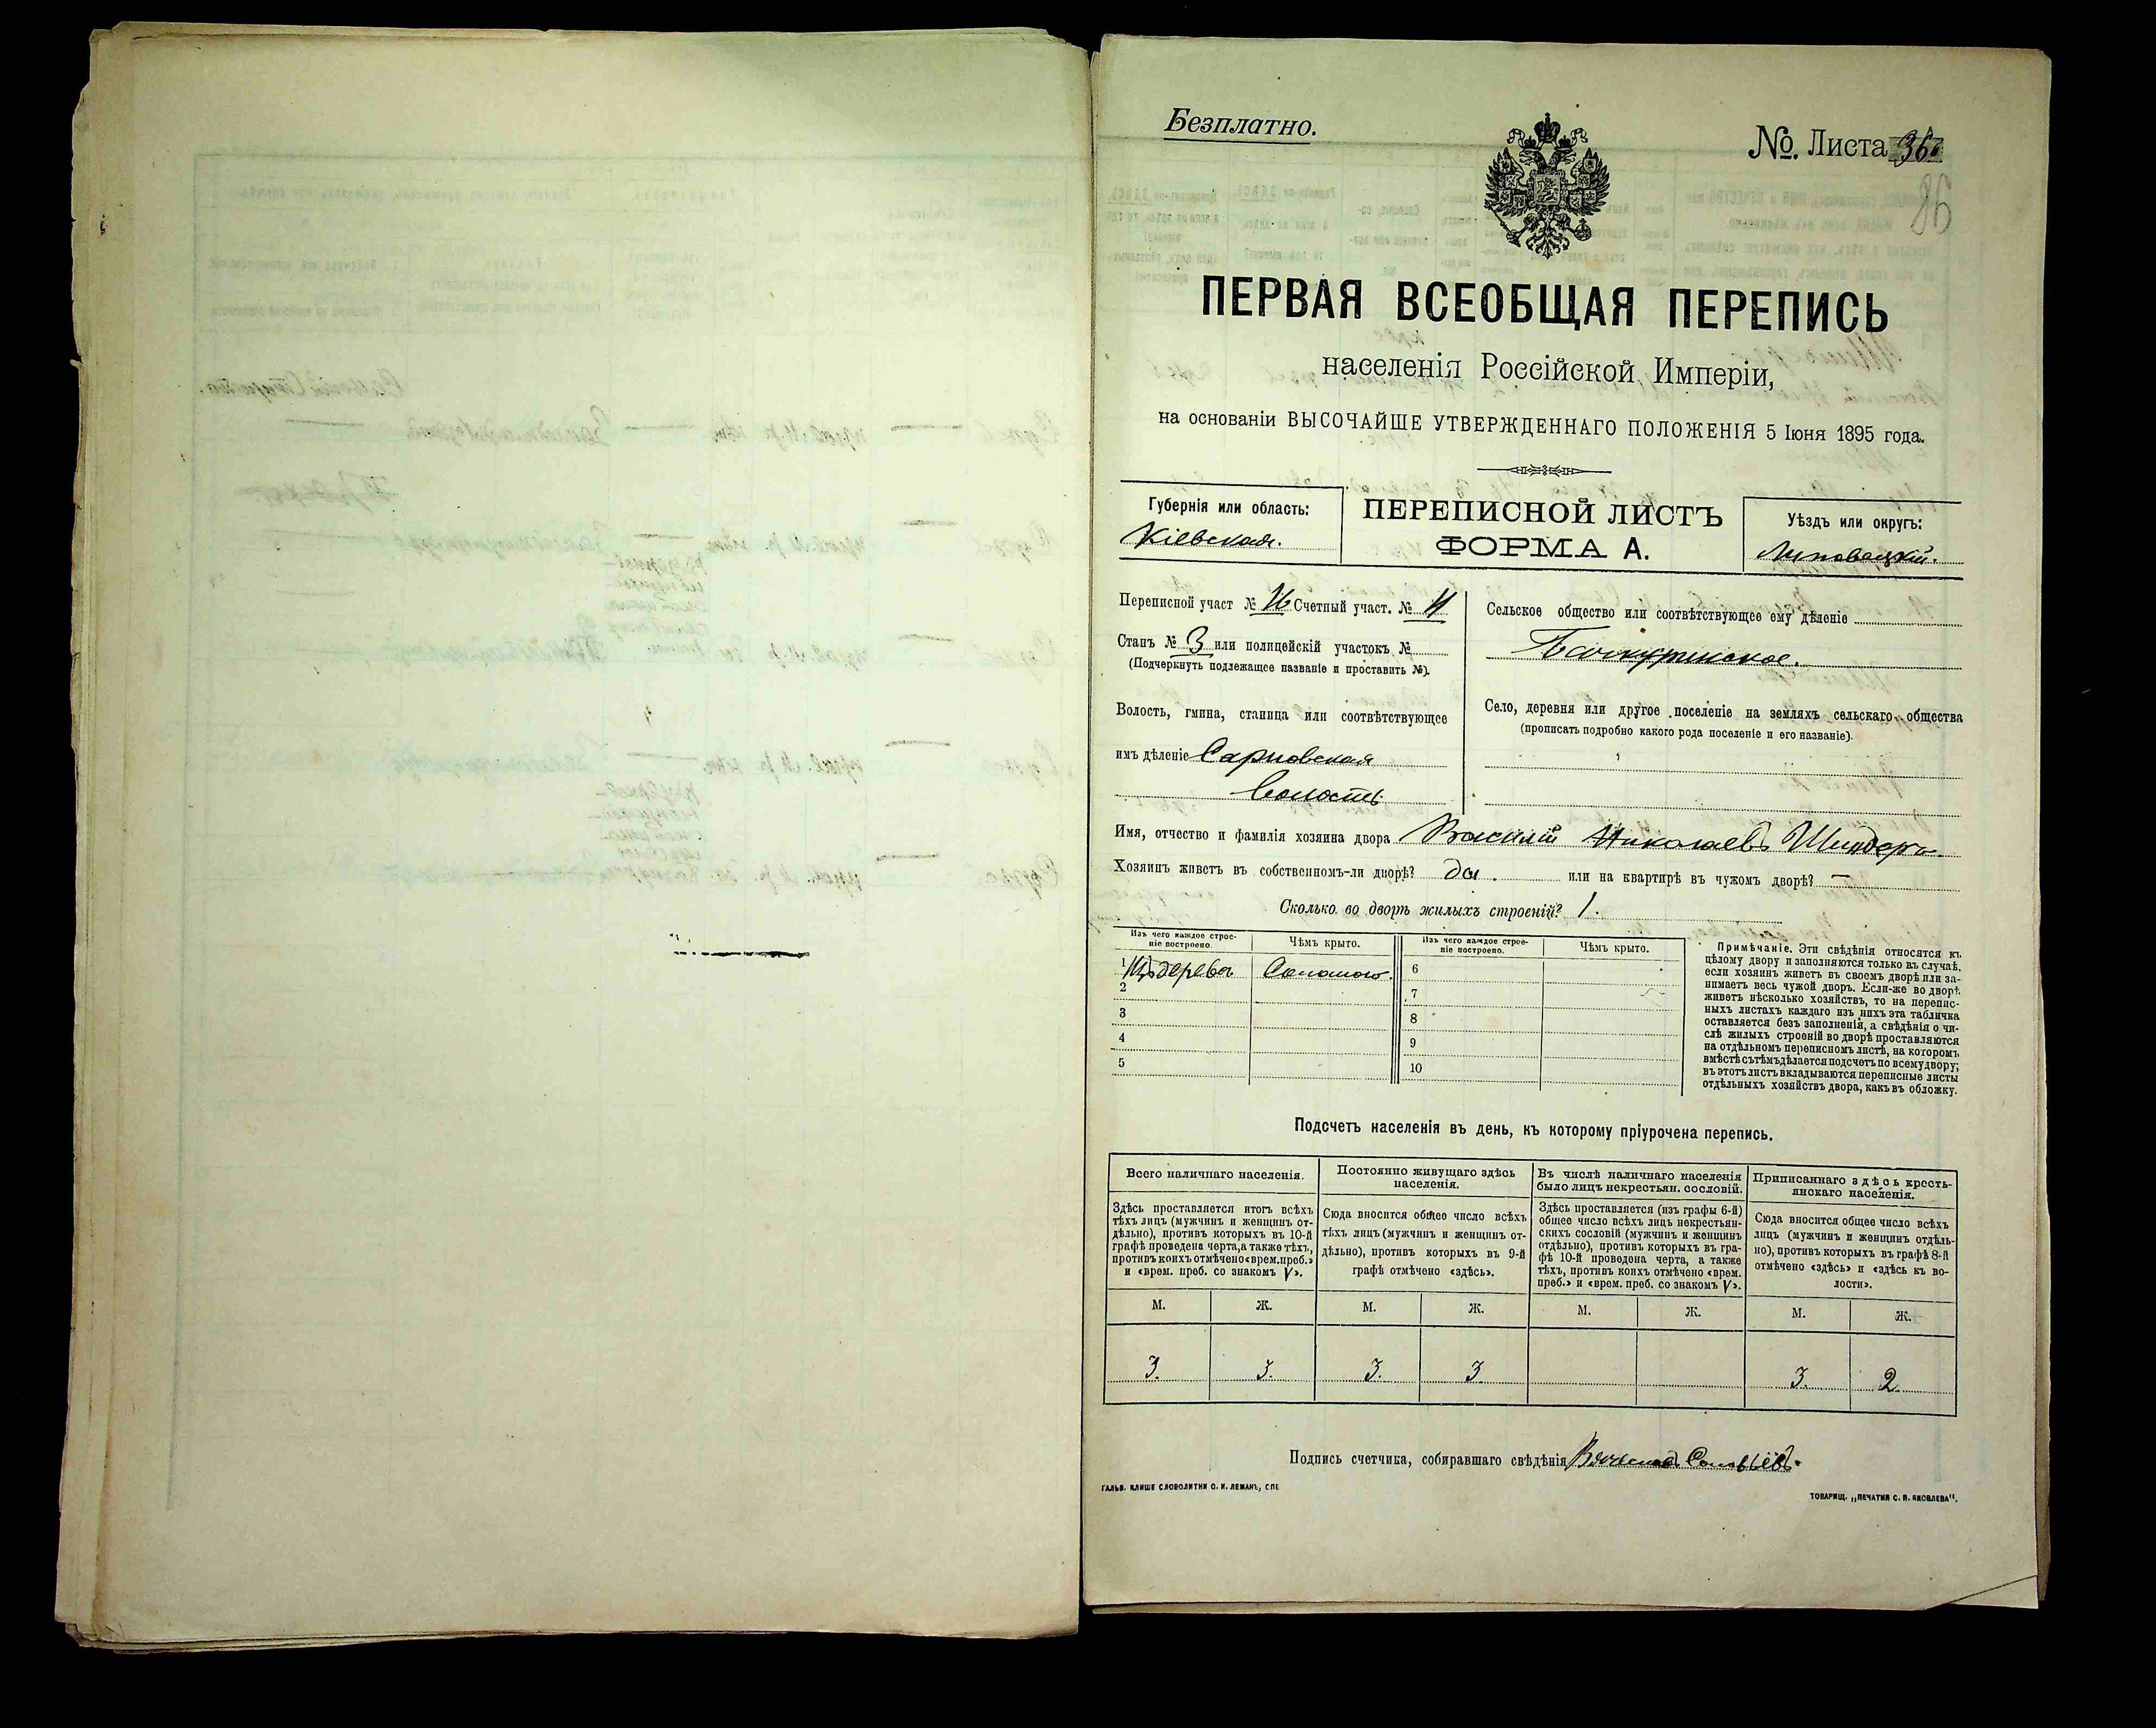 Безплатно.
№. Листа 36
86
ПЕРВАЯ ВСЕОБЩАЯ ПЕРЕПИСЬ
населенія Россійской Имперіи,
на основаніи ВЫСОЧАЙШЕ УТВЕРЖДЕННАГО ПОЛОЖЕНІЯ 5 Іюня 1895 года.
Губернія или область:
Кіевская.
ПЕРЕПИСНОЙ ЛИСТЪ
ФОРМА А.
Уѣздъ или округъ:
Липовецкій.
Переписной участ № Счетный участ. №
Станъ № 3 или полицейскій участокъ №
(Подчеркнуть подлежащее названіе и проставить №).
Волость, гмина, станица или соотвѣтствующее
имъ дѣленіе Сарновская
Волость
Сельское общество или соотвѣтствующее ему дѣленіе
Село, деревня или другое поселеніе на земляхъ сельскаго общества
(прописать подробно какого рода поселеніе и его названіе).
Имя, отчество и фамилія хозяина двора Василій Николаевъ Шиндеръ.
Хозяинъ живетъ въ собственномъ-ли дворѣ? да. или на квартирѣ въ чужомъ дворѣ? —
Сколько во дворѣ жилыхъ строеній? 1.
Изъ чего каждое строеніе построено.
Чѣмъ крыто.
Изъ чего каждое строеніе построено.
Чѣмъ крыто.
1 Изъ дерева Соломою. 6
2 7
3 8
4 9
5 10
Примѣчаніе. Эти свѣдѣнія относятся къ
цѣлому двору и заполняются только въ случаѣ,
если хозяинъ живетъ въ своемъ дворѣ или за-
нимаетъ весь чужой дворъ. Если-же во дворѣ
живетъ нѣсколько хозяйствъ, то на перепис-
ныхъ листахъ каждаго изъ нихъ эта табличка
оставляется безъ заполненія, а свѣдѣнія о чи-
слѣ жилыхъ строеній во дворѣ проставляются
на отдѣльномъ переписномъ листѣ, на которомъ
вмѣстѣ съ тѣмъ дѣлается подсчетъ по всему двору;
въ этотъ листъ вкладываются переписные листы
отдѣльныхъ хозяйствъ двора, какъ въ обложку.
Подсчетъ населенія въ день, къ которому пріурочена перепись.
Всего наличнаго населенія.
Постоянно живущаго здѣсь
населенія.
Въ числѣ наличнаго населенія
было лицъ некрестьян. сословій.
Приписаннаго здѣсь кресть-
янскаго населенія.
Здѣсь проставляется итогъ всѣхъ
тѣхъ лицъ (мужчинъ и женщинъ от-
дѣльно), противъ которыхъ въ 10-й
графѣ проведена черта, а также тѣхъ,
противъ коихъ отмѣчено «врем. преб.»
и «врем. преб. со знакомъ V».
Сюда вносится общее число всѣхъ
тѣхъ лицъ (мужчинъ и женщинъ от-
дѣльно), противъ которыхъ въ 9-й
графѣ отмѣчено «здѣсь».
Здѣсь проставляется (изъ графы 6-й)
общее число всѣхъ лицъ некрестьян-
скихъ сословій (мужчинъ и женщинъ
отдѣльно), противъ которыхъ въ гра-
фѣ 10-й проведена черта, а также
тѣхъ, противъ коихъ отмѣчено «врем.
преб.» и «врем. преб. со знакомъ V».
Сюда вносится общее число всѣхъ
лицъ (мужчинъ и женщинъ отдѣль-
но), противъ которыхъ въ графѣ 8-й
отмѣчено «здѣсь» и «здѣсь къ во-
лости».
М. Ж. М. Ж. М. Ж. М. Ж.
3. 3. 3. 3. 3. 2.
Подпись счетчика, собиравшаго свѣдѣнія Вячеславъ Соловьёвъ.
ГАЛЬВ. КЛИШЕ СЛОВОЛИТНИ О. И. ЛЕМАНЪ, СПБ
ТОВАРИЩ. „ПЕЧАТНЯ С. П. ЯКОВЛЕВА".